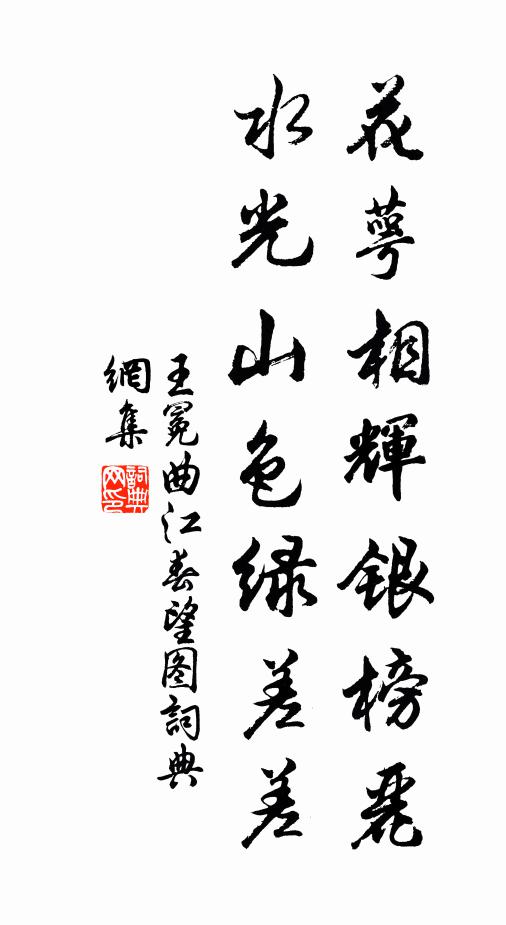 花萼相輝銀榜麗
水光山色緑差差
王冕曲江春望图詞典
網集
詞典網印